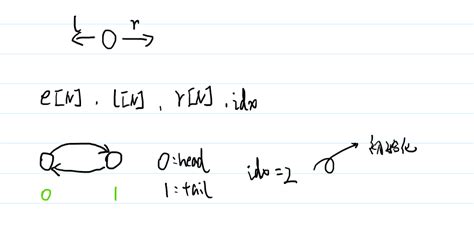 l r
e[N], l[N], r[N], idx
0:head idx=2 初始化
1:tail
0 1